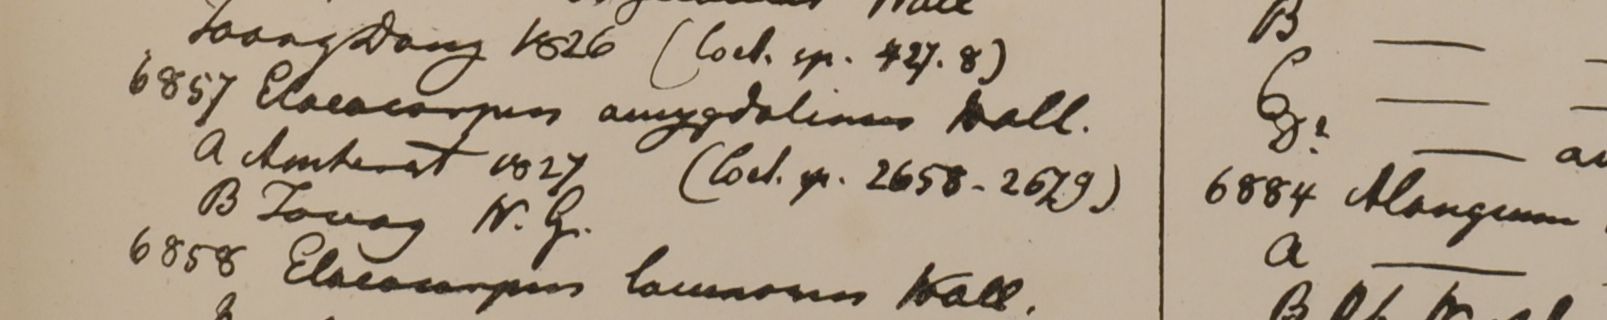 Wall
Toong Dong 1826 (Cat. sp. 427. 8)
6857 Elaeocarpus amygdalinus Wall.
A Amherst 1827 (Cat. sp. 2658 - 2679)
B Tavoy W. G.
6858 Elaeocarpus lacunosus Wall.
B
C
D?
6884 Alangium
A
B